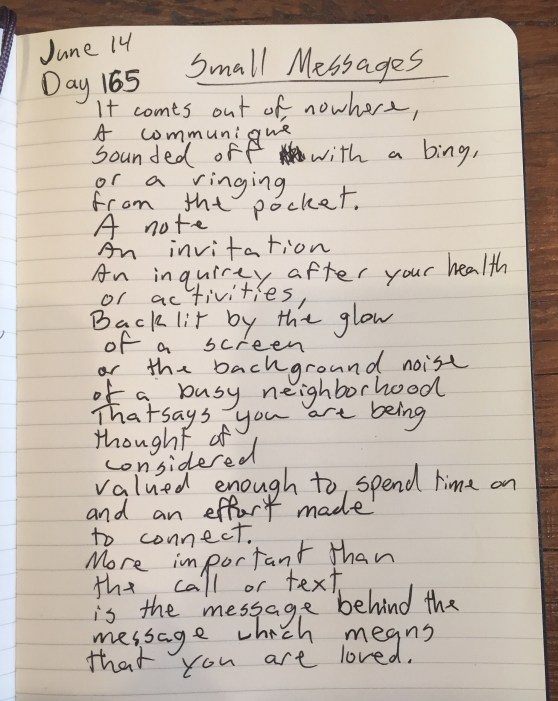 June 14
Day 165
Small Messages
It comes out of nowhere,
A communiqué
Sounded off with a bing,
or a ringing
from the pocket.
A note
An invitation
An inquirey after your health
or activities,
Backlit by the glow
of a screen
or the background noise
of a busy neighborhood
That says you are being
thought of
considered
valued enough to spend time on
and an effort made
to connect.
More important than
the call or text
is the message behind the
message which means
that you are loved.